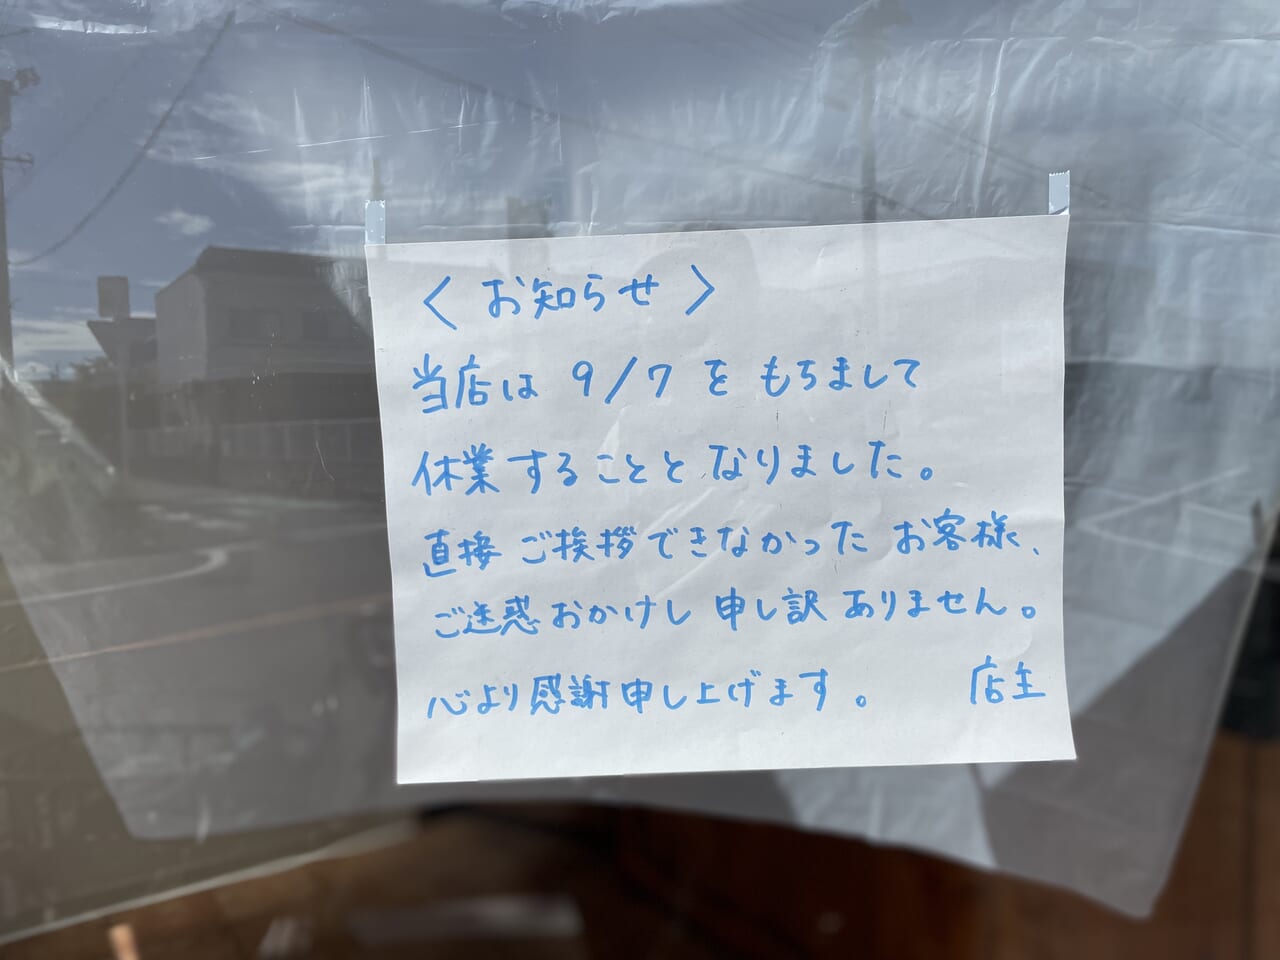 〈 お知らせ 〉
当店は 9/7 を もちまして
休業することと なりました。
直接 ご挨拶できなかった お客様、
ご迷惑おかけし 申し訳ありません。
心より感謝申し上げます。 店主